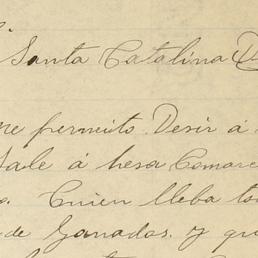 Santa Catalina D
me permito Desir á
Sale á hesa Comare
Cuien lleba to
de Ganados. y qu